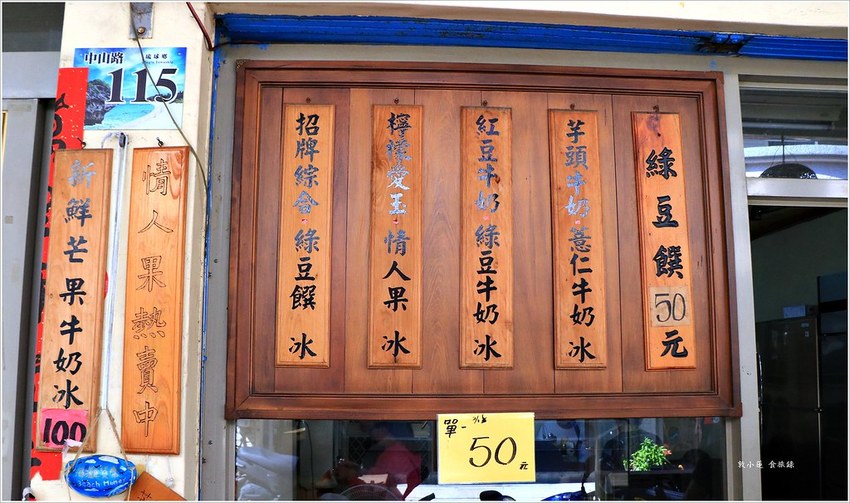 中山路
琉球鄉
115
綠豆饌
50
元
芋頭牛奶 薏仁牛奶 冰
紅豆牛奶 綠豆牛奶 冰
檸檬愛玉·情人果 冰
招牌綜合·綠豆饌 冰
情人果熱賣中
新鮮芒果牛奶冰
100
單一
50元
Beach
敦小蓮 食旅錄